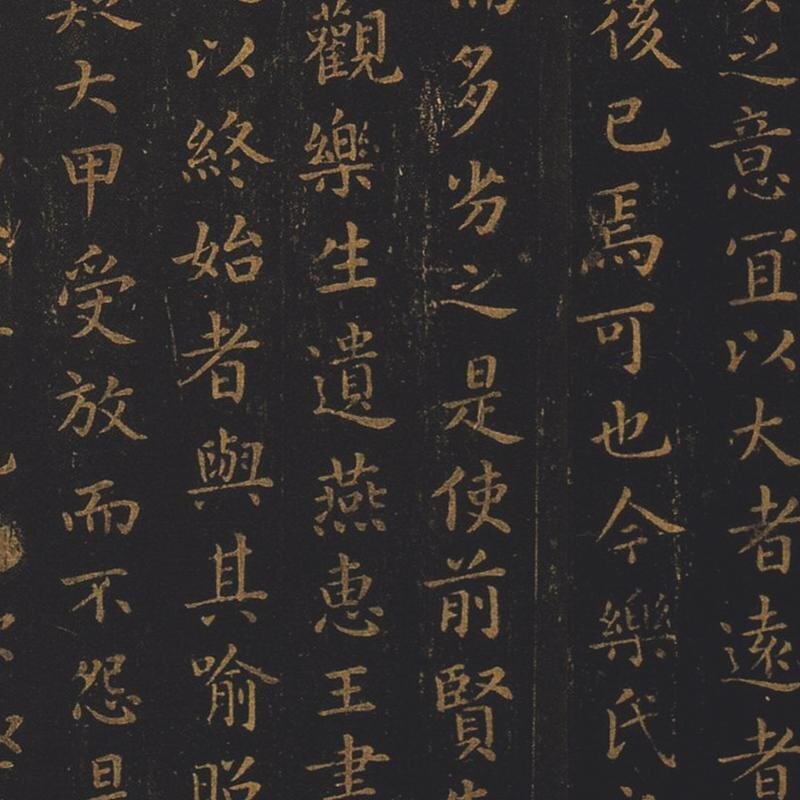 之意冝以大者遠者
後已焉可也今樂氏
而多劣之是使前賢
觀樂生遺燕惠王書
以終始者與其喻昭
疑大甲受放而不怨是